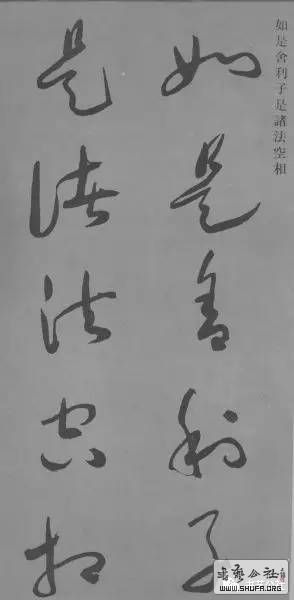 如是舍利子是諸法空相
如是舍利子
是諸法空相
书艺公社
WWW.SHUFA.ORG